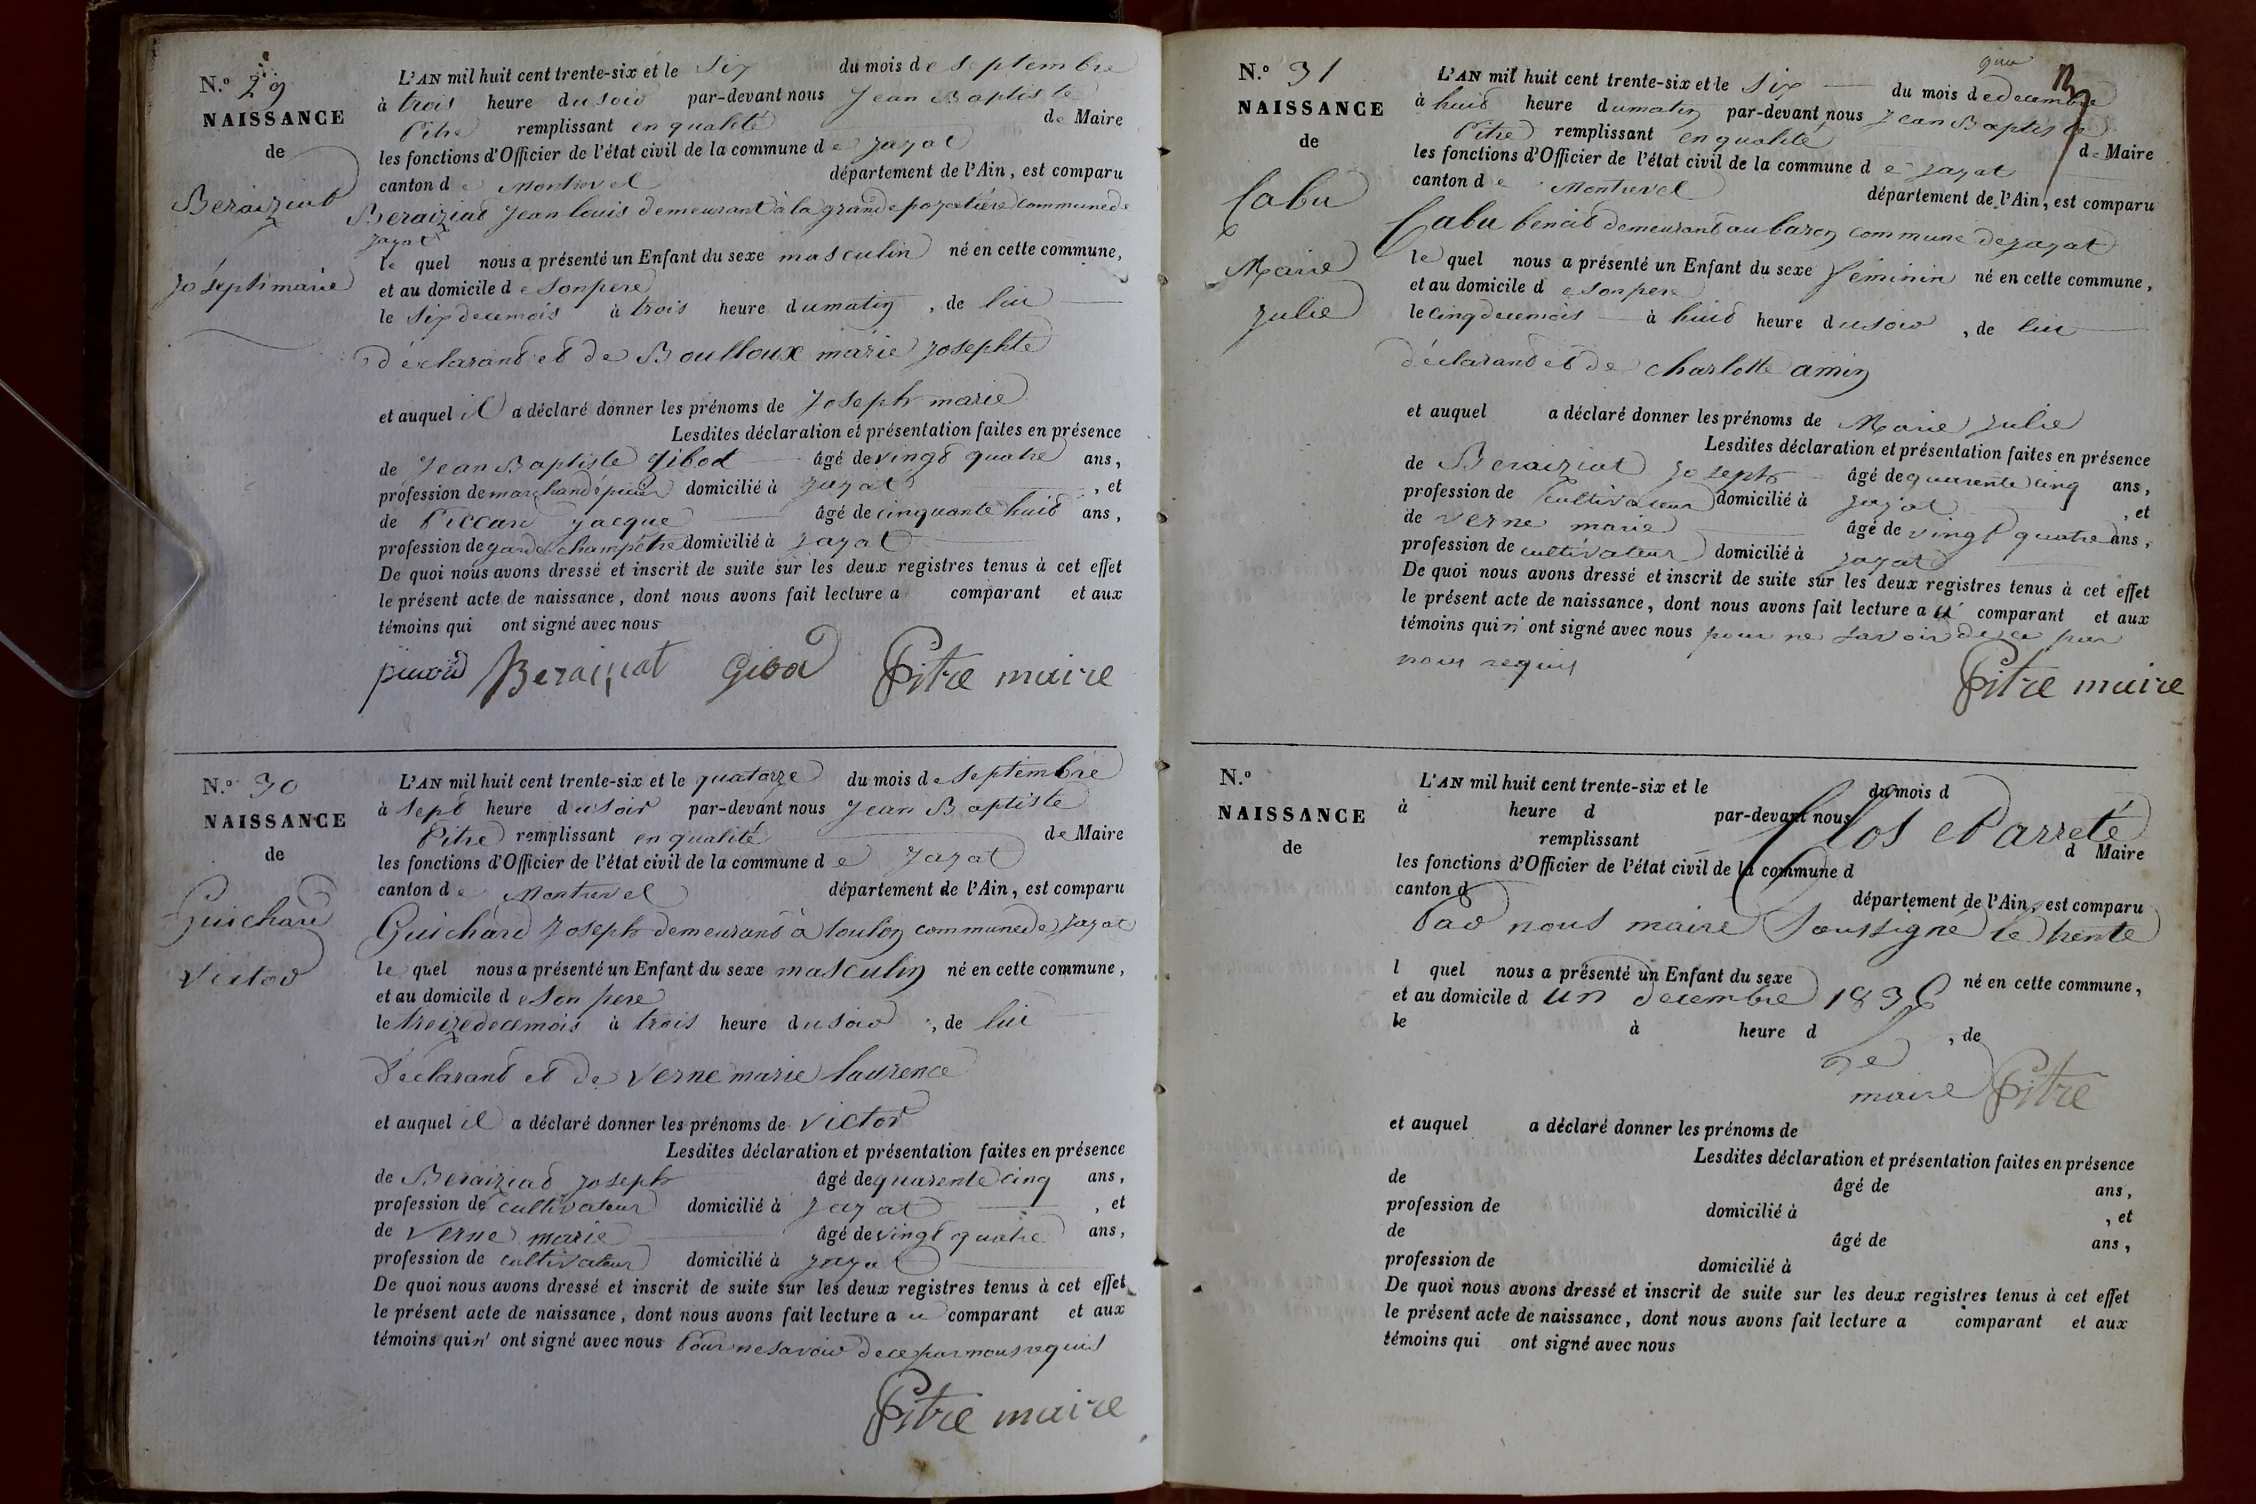 N.° 29
NAISSANCE
de
Beraiziat
Joseph marie
L'AN mil huit cent trente-six et le Six du mois de septembre
à trois heure du soir par-devant nous Jean Baptiste
Pitre remplissant en qualité de Maire
les fonctions d'Officier de l'état civil de la commune de Jayat
canton de Montrevel département de l'Ain, est comparu
Beraiziat Jean louis demeurant à la grande poyatière commune de
Jayat
le quel nous a présenté un Enfant du sexe masculin né en cette commune,
et au domicile de son pere
le six de ce mois à trois heure du matin, de lui
déclarant et de Boulloux marie josephte
et auquel il a déclaré donner les prénoms de Joseph marie
Lesdites déclaration et présentation faites en présence
de Jean Baptiste Gibod âgé de vingt quatre ans,
profession de marchand épicier domicilié à Jayat, et
de Piccard Jacque âgé de cinquante huit ans,
profession de garde champêtre domicilié à Jayat
De quoi nous avons dressé et inscrit de suite sur les deux registres tenus à cet effet
le présent acte de naissance, dont nous avons fait lecture a comparant et aux
témoins qui ont signé avec nous
Beraiziat Gibod Pitre maire
N.° 30
NAISSANCE
de
Guichard
Victor
L'AN mil huit cent trente-six et le quatorze du mois de septembre
à sept heure du soir par-devant nous Jean Baptiste
Pitre remplissant en qualité de Maire
les fonctions d'Officier de l'état civil de la commune de Jayat
canton de Montrevel département de l'Ain, est comparu
Guichard Joseph demeurant à toulon commune de Jayat
le quel nous a présenté un Enfant du sexe masculin né en cette commune,
et au domicile de son pere
le treize de ce mois à trois heure du soir, de lui
Déclarant et de Verne marie laurence
et auquel il a déclaré donner les prénoms de victor
Lesdites déclaration et présentation faites en présence
de Beraiziat Joseph âgé de quarente cinq ans,
profession de cultivateur domicilié à Jayat, et
de Verne marie âgé de vingt quatre ans,
profession de cultivateur domicilié à Jayat
De quoi nous avons dressé et inscrit de suite sur les deux registres tenus à cet effet
le présent acte de naissance, dont nous avons fait lecture a u comparant et aux
témoins qui n' ont signé avec nous Pour ne savoir de ce par nous requis
Pitre maire
N.° 31
NAISSANCE
de
Cabu
Marie
Julie
L'AN mil huit cent trente-six et le Six du mois de decembre
à huit heure du matin par-devant nous Jean Baptiste
Pitre remplissant en qualité de Maire
les fonctions d'Officier de l'état civil de la commune de Jayat
canton de Montrevel département de l'Ain, est comparu
Cabu benoit demeurant au baron commune de Jayat
le quel nous a présenté un Enfant du sexe féminin né en cette commune,
et au domicile de son pere
le cinq de ce mois à huit heure du soir, de lui
déclarant et de charlotte amin
et auquel a déclaré donner les prénoms de Marie Julie
Lesdites déclaration et présentation faites en présence
de Beraiziat Joseph âgé de quarente cinq ans,
profession de cultivateur domicilié à Jayat, et
de verne marie âgé de vingt quatre ans,
profession de cultivateur domicilié à Jayat
De quoi nous avons dressé et inscrit de suite sur les deux registres tenus à cet effet
le présent acte de naissance, dont nous avons fait lecture a u comparant et aux
témoins qui n' ont signé avec nous pour ne savoir de ce par
nous requis
Pitre maire
N.°
NAISSANCE
de
L'AN mil huit cent trente-six et le du mois d
à heure d par-devant nous
Clos et arreté
remplissant d Maire
les fonctions d'Officier de l'état civil de la commune d
canton d département de l'Ain, est comparu
Par nous maire Soussigné le trente
l quel nous a présenté un Enfant du sexe né en cette commune,
et au domicile d un decembre 1836
le à heure d, de
Le
maire Pitre
et auquel a déclaré donner les prénoms de
Lesdites déclaration et présentation faites en présence
de âgé de ans,
profession de domicilié à, et
de âgé de ans,
profession de domicilié à
De quoi nous avons dressé et inscrit de suite sur les deux registres tenus à cet effet
le présent acte de naissance, dont nous avons fait lecture a comparant et aux
témoins qui ont signé avec nous